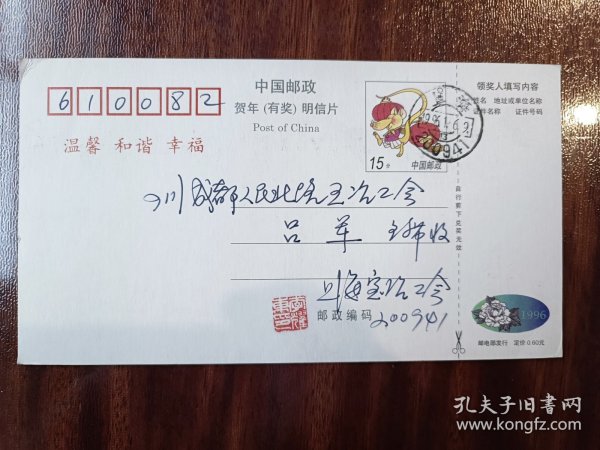 610082
中国邮政
贺年(有奖)明信片
Post of China
温馨 和谐 幸福
15分
中国邮政
200941
领奖人填写内容
姓名 地址或单位名称
证件名称 证件号码
自行剪下兑奖无效
四川成都市人民北路五冶工会
吕军 主席收
上海宝冶工会
邮政编码 200941
1996
邮电部发行 定价0.60元
孔夫子旧书网
www.kongfz.com